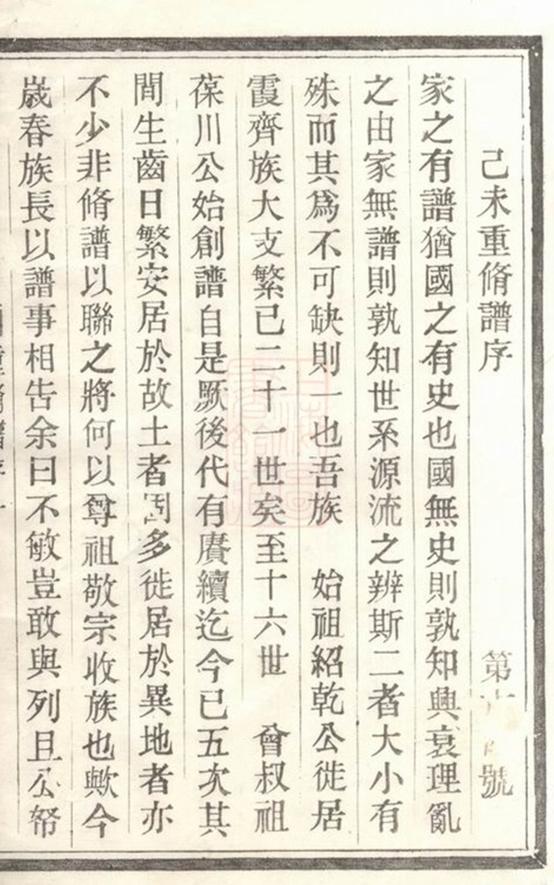 己未重脩譜序 第 號
家之有譜猶國之有史也國無史則孰知興衰理亂
之由家無譜則孰知世系源流之辨斯二者大小有
殊而其爲不可缺則一也吾族 始祖紹乾公徙居
霞齊族大支繁已二十一世矣至十六世 曾叔祖
葆川公始創譜自是厥後代有賡續迄今已五次其
間生齒日繁安居於故土者固多徙居於異地者亦
不少非脩譜以聯之將何以尊祖敬宗收族也歟今
歲春族長以譜事相告余曰不敏豈敢與列且公帑